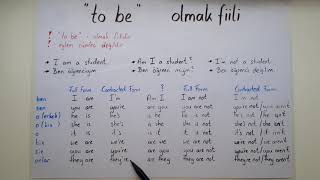 "to be" olmak fiili
! "to be" : olmak fiilidir
! eylem cümlesi değildir
→ I am a student. → Am I a student? → I am not a student.
→ Ben öğrenciyim → Ben öğrenci miyim? → Ben öğrenci değilim.
Full Form Contracted Form ? Full Form Contracted Form
ben I am I'm Am I I am not I'm not
sen you are you're are you you are not you're not/you aren't
o (erkek) he is he's is he he is not he's not/he isn't
o (kız) she is she's is she she is not she's not/she isn't
o it is it's is it it is not it's not/it isn't
biz we are we're are we we are not we're not/we aren't
siz you are you're are you you are not you're not/you aren't
onlar they are they're are they they are not they're not/they aren't